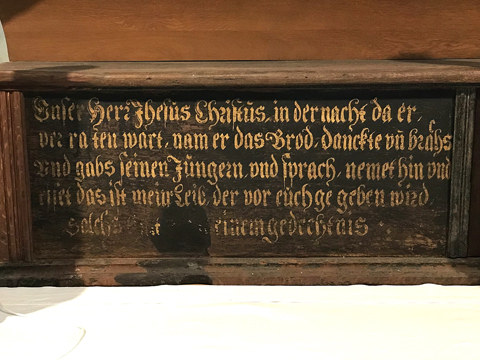 Unser Herr Jhesus Christus, in der nacht da er,
ver ra ten wart, nam er das Brod, danckte vñ brachs
Vnd gabs seinen Jüngern, vnd sprach, nemet hin vnd
esset das ist mein Leib, der vor euch ge geben wird.
Solchs einem gedechtnis